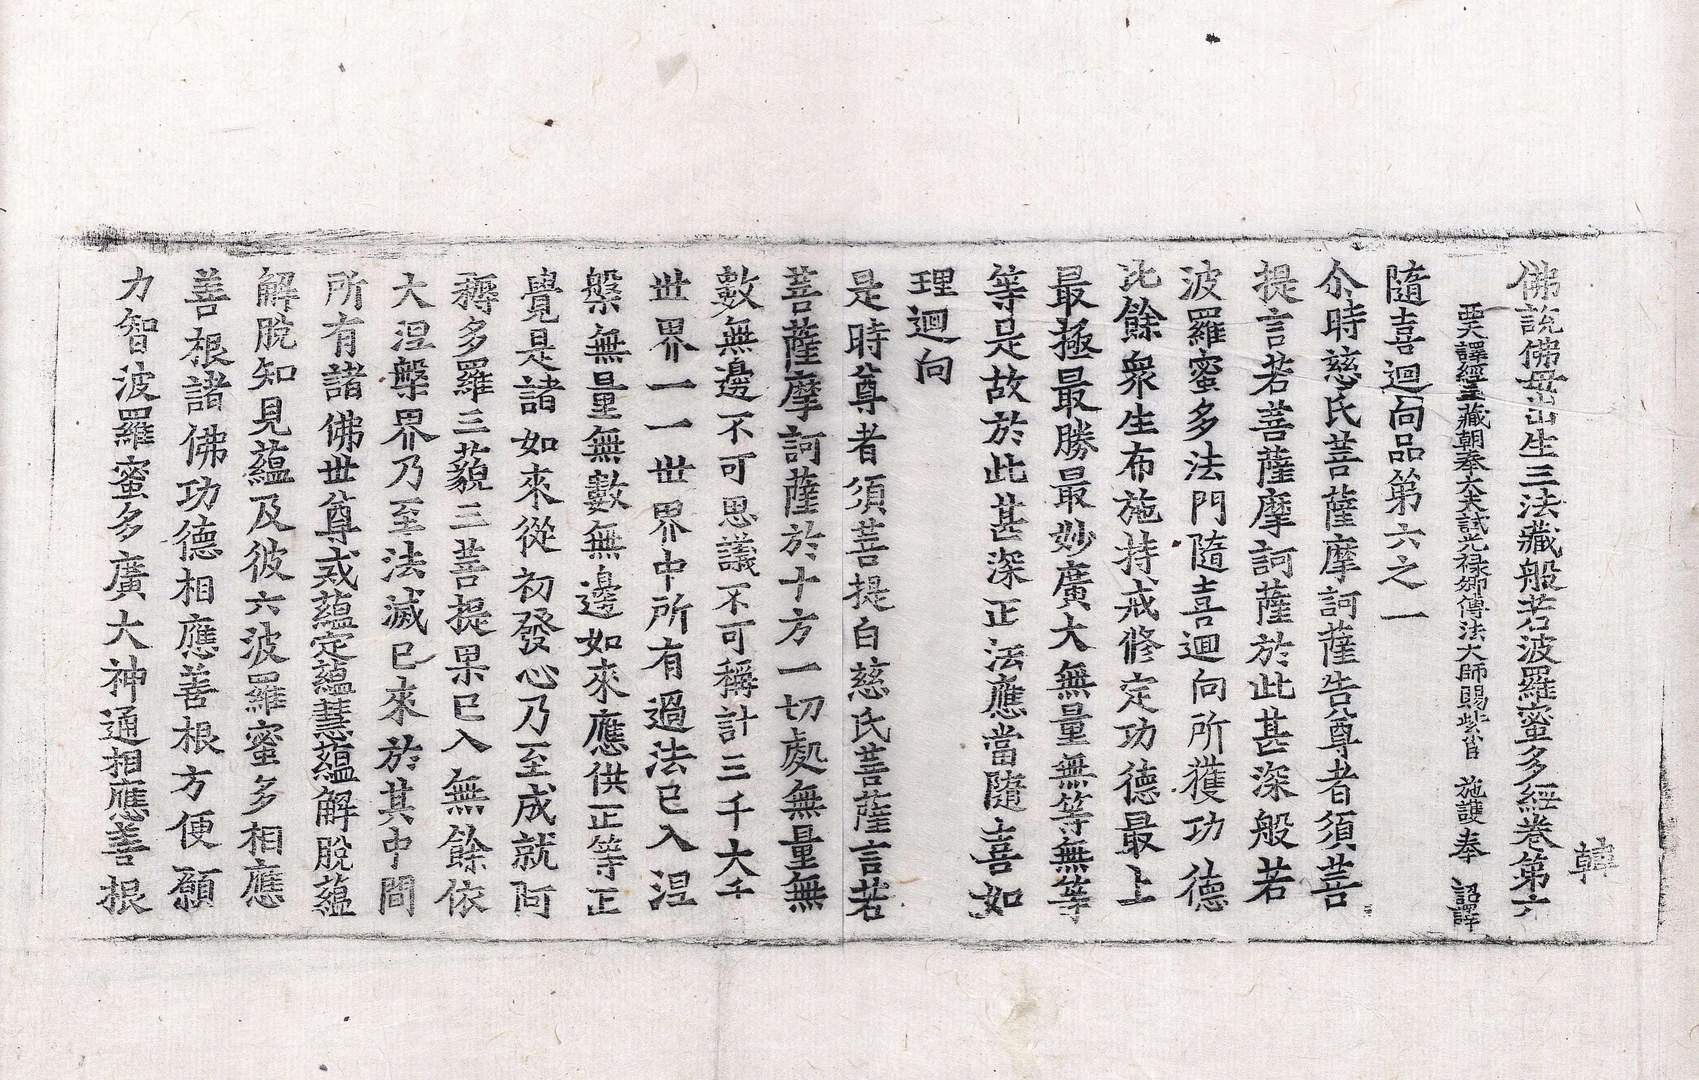 佛說佛母出生三法藏般若波羅蜜多經卷第六
韓
西天譯經三藏朝奉大夫試光禄卿傳法大師賜紫臣 施護 奉 詔譯
隨喜迴向品第六之一
尒時慈氏菩薩摩訶薩告尊者須菩
提言若菩薩摩訶薩於此甚深般若
波羅蜜多法門隨喜迴向所獲功德
比餘衆生布施持戒修定功德最上
最極最勝最妙廣大無量無等無等
等是故於此甚深正法應當隨喜如
理迴向
是時尊者須菩提白慈氏菩薩言若
菩薩摩訶薩於十方一切處無量無
數無邊不可思議不可稱計三千大千
世界一一世界中所有過法已入涅
槃無量無數無邊如來應供正等正
覺是諸如來從初發心乃至成就阿
耨多羅三藐三菩提果已入無餘依
大涅槃界乃至法滅已來於其中間
所有諸佛世尊戒蘊定蘊慧蘊解脫蘊
解脫知見蘊及彼六波羅蜜多相應
善根諸佛功德相應善根方便願
力智波羅蜜多廣大神通相應善根